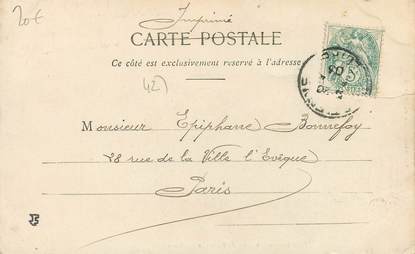 20€
Imprimé
CARTE POSTALE
Ce côté est exclusivement reservé à l'adresse
42)
5
03
Monsieur Epiphane Bonnefoy
28 rue de la Ville l'Evêque
Paris